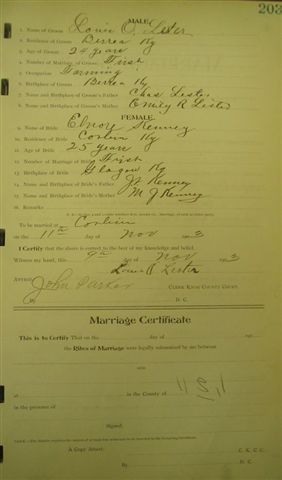 203
MALE
1. Name of Groom Louis O. Lester
2. Residence of Groom Berrea Ky
3. Age of Groom 24 years
4. Number of Marriage of Groom First
5. Occupation Farming
6. Birthplace of Groom Berea Ky
7. Name and Birthplace of Groom's Father Chas Lester
8. Name and Birthplace of Groom's Mother Emily R Lester
FEMALE.
9. Name of Bride Kenney
10. Residence of Bride Corbin Ky
11. Age of Bride 25 years
12. Number of Marriage of Bride First
13. Birthplace of Bride Glasgow Ky
14. Name and Birthplace of Bride's Father Kenney
15. Name and Birthplace of Bride's Mother M J Kenney
16. Remarks
To be married at Corbin
on the 11th day of Nov 3
I Certify that the above is correct to the best of my knowledge and belief.
Witness my hand, this 9th day of Nov 3
Louis O. Lester
Attest:
John Parker CLERK KNOX COUNTY COURT.
By D. C.
Marriage Certificate
This is to Certify That on the day of 190
the Rites of Marriage were legally solemnized by me between
and
at in the County of
in the presence of
Signed:
A Copy Attest: C. K. C. C.
By D. C.